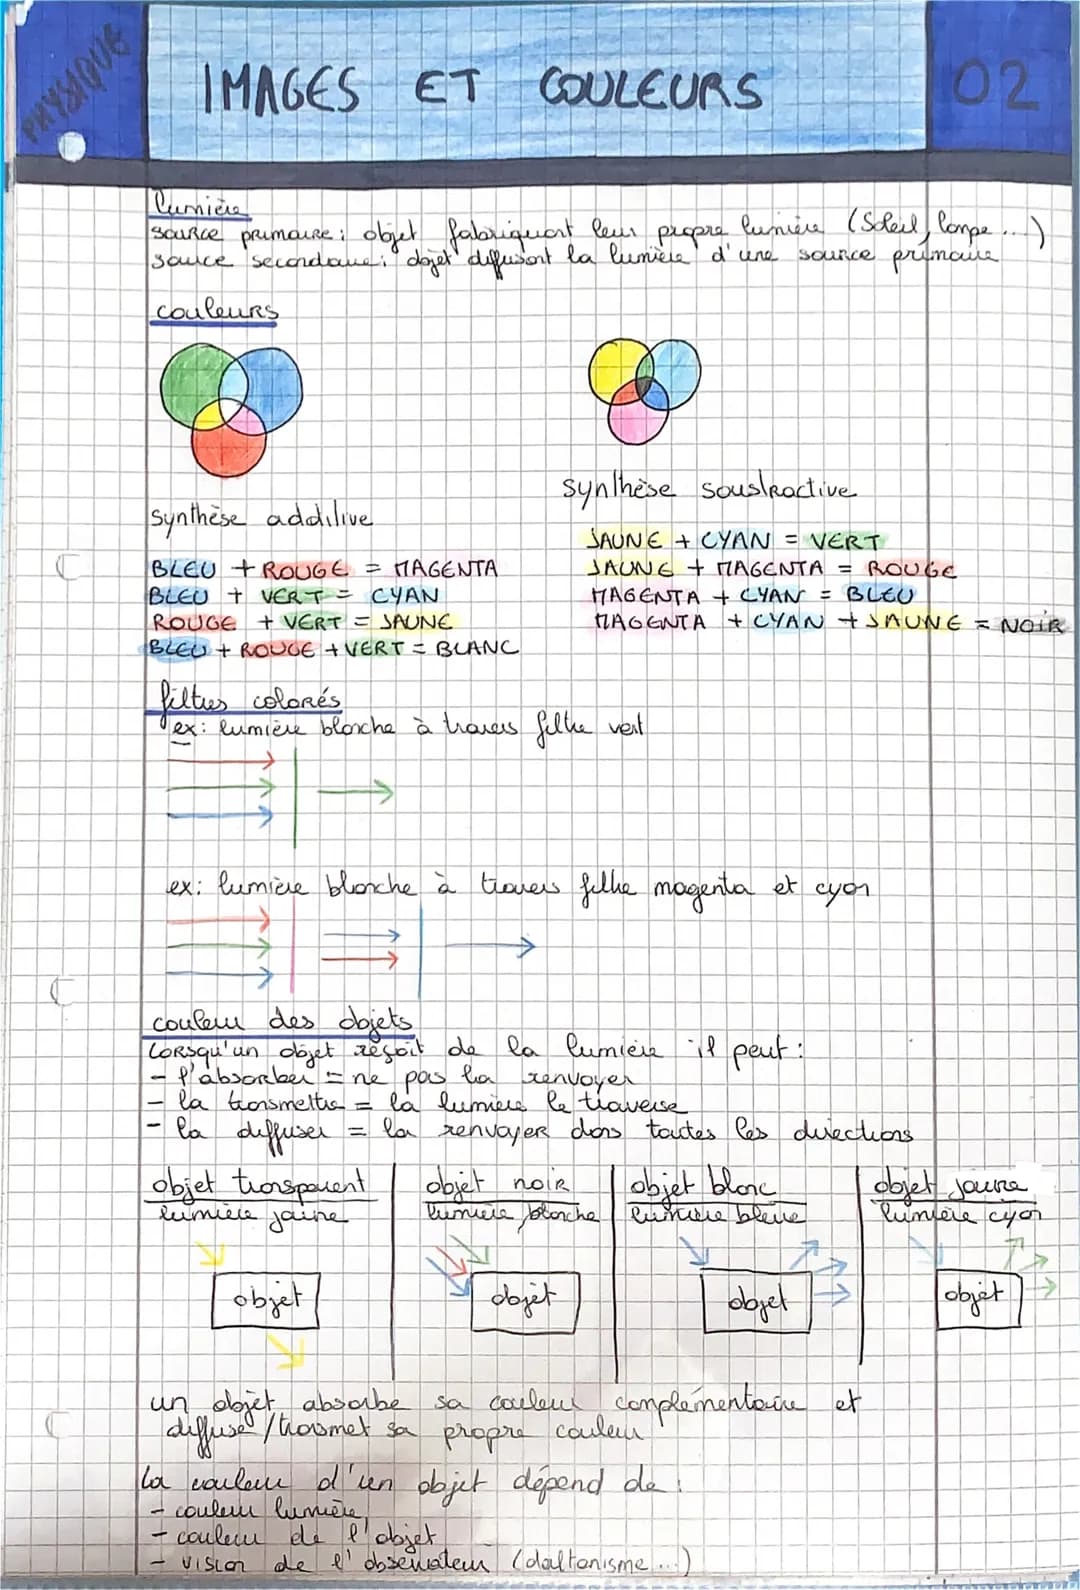 PHYSIQUE
IMAGES ET COULEURS
02
lumière
source primaire : objet fabriquant leur propre lumière (Soleil, lampe ...)
source secondaire : objet diffusant la lumière d'une source primaire
couleurs
synthèse additive
BLEU + ROUGE = MAGENTA
BLEU + VERT = CYAN
ROUGE + VERT = JAUNE
BLEU + ROUGE + VERT = BLANC
synthèse soustractive
JAUNE + CYAN = VERT
JAUNE + MAGENTA = ROUGE
MAGENTA + CYAN = BLEU
MAGENTA + CYAN + JAUNE = NOIR
filtres colorés
ex: lumière blanche à travers filtre vert
ex: lumière blanche à travers filtre magenta et cyan
couleur des objets
Lorsqu'un objet reçoit de la lumière il peut :
- l'absorber = ne pas la renvoyer
- la transmettre = la lumière le traverse
- la diffuser = la renvoyer dans toutes les directions
objet transparent
lumière jaune
objet
objet noir
lumière blanche
objet
objet blanc
lumière bleue
objet
objet jaune
lumière cyan
objet
un objet absorbe sa couleur complémentaire et
diffuse / transmet sa propre couleur
la couleur d'un objet dépend de :
- couleur lumière
- couleur de l'objet
- vision de l'observateur (daltonisme ...)